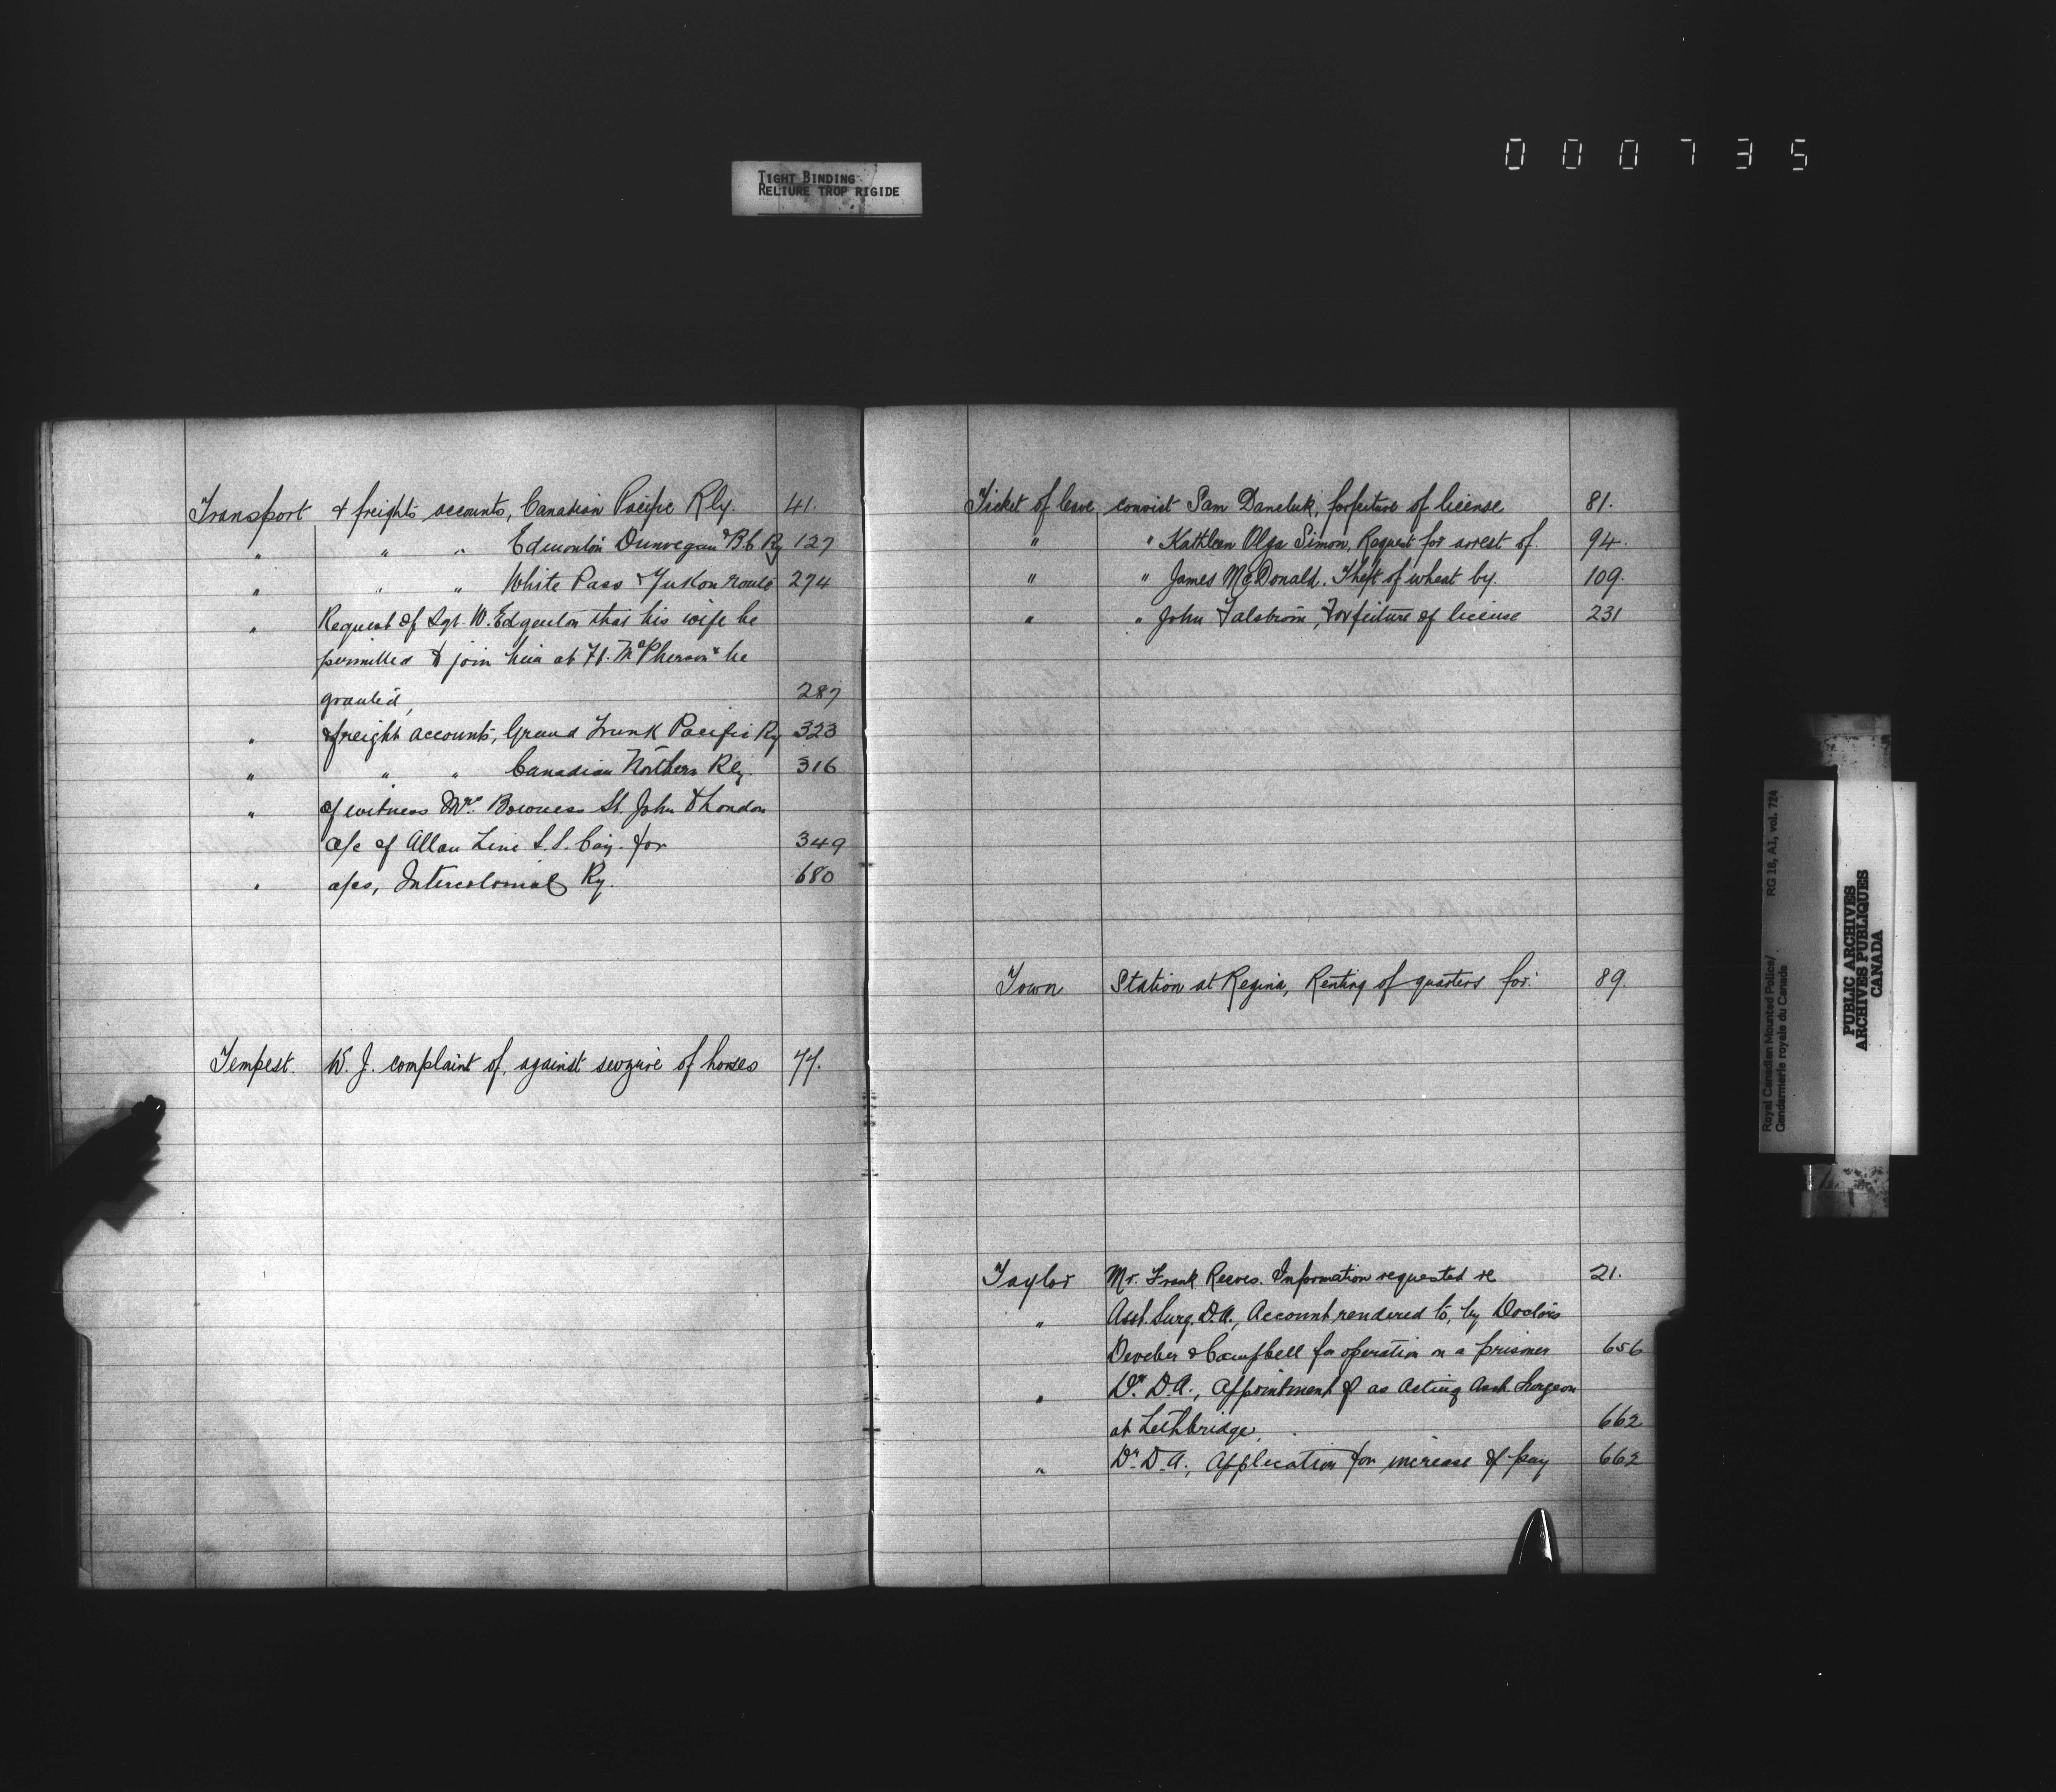 000735
TIGHT BINDING
RELIURE TROP RIGIDE
Transport & freights accounts, Canadian Pacific Rly. 41.
" " " Edmonton Dunvegan & B.C Ry 127
" " " White Pass & Yukon route 274
" Request of Sgt. W. Edgenton that his wife be
permitted to join him at Ft. McPherson & be
granted, 287
" & freight accounts, Grand Trunk Pacific Ry 323
" " " Canadian Northern Rly. 316
" of witness Mrs. Bowness St. John to London
a/c of Allan Line S.S. Coy. for 349
" a/cs, Intercolonial Ry. 680
Tempest. W. J. complaint of, against seizure of horses 77.
Ticket of leave, convict Sam Daneluk, forfeiture of license 81.
" " Kathleen Olga Simon, Request for arrest of. 94.
" " James McDonald. Theft of wheat by. 109.
" " John Falstrom, Forfeiture of license 231
Town Station at Regina, Renting of quarters for. 89.
Taylor Mr. Frank Reeves. Information requested re 21.
" Asst. Surg. D.A., Account rendered to, by Doctors
Deveber & Campbell for operation on a prisoner 656
" Dr. D.A., Appointment of as Acting Asst. Surgeon
at Lethbridge, 662
" Dr. D.A., Application for increase of pay 662
Royal Canadian Mounted Police/ RG 18, A1, vol. 724
Gendarmerie royale du Canada
PUBLIC ARCHIVES
ARCHIVES PUBLIQUES
CANADA